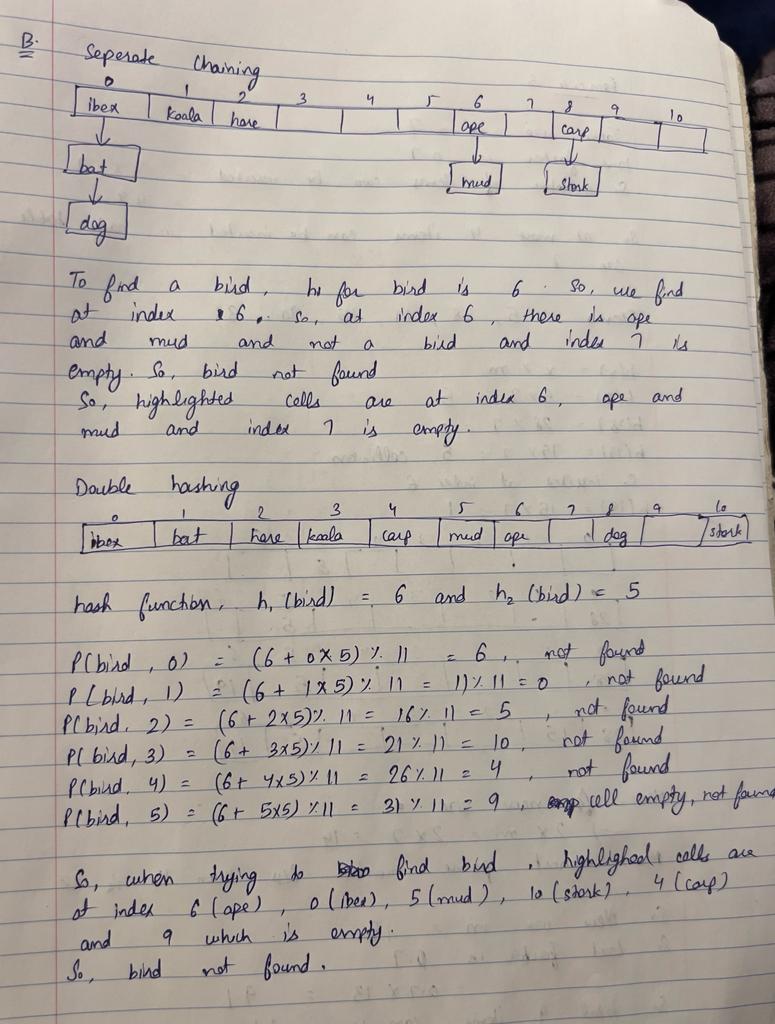 B.
Seperate Chaining
0 1 2 3 4 5 6 7 8 9 10
ibex koala hare ape carp
bat mud stork
dog
To find a bird, h1 for bird is 6. So, we find
at index 6. So, at index 6, there is ape
and mud and not a bird and index 7 is
empty. So, bird not found
So, highlighted cells are at index 6, ape and
mud and index 7 is empty.
Double hashing
0 1 2 3 4 5 6 7 8 9 10
ibex bat hare koala carp mud ape dog stork
hash function, h1 (bird) = 6 and h2 (bird) = 5
P(bird, 0) = (6 + 0x5) % 11 = 6, not found
P(bird, 1) = (6 + 1x5) % 11 = 11 % 11 = 0, not found
P(bird, 2) = (6 + 2x5) % 11 = 16 % 11 = 5, not found
P(bird, 3) = (6 + 3x5) % 11 = 21 % 11 = 10, not found
P(bird, 4) = (6 + 4x5) % 11 = 26 % 11 = 4, not found
P(bird, 5) = (6 + 5x5) % 11 = 31 % 11 = 9, cell empty, not found
So, when trying to find bird, highlighed cells are
at index 6 (ape), 0 (ibex), 5 (mud), 10 (stork), 4 (carp)
and 9 which is empty.
So, bird not found.